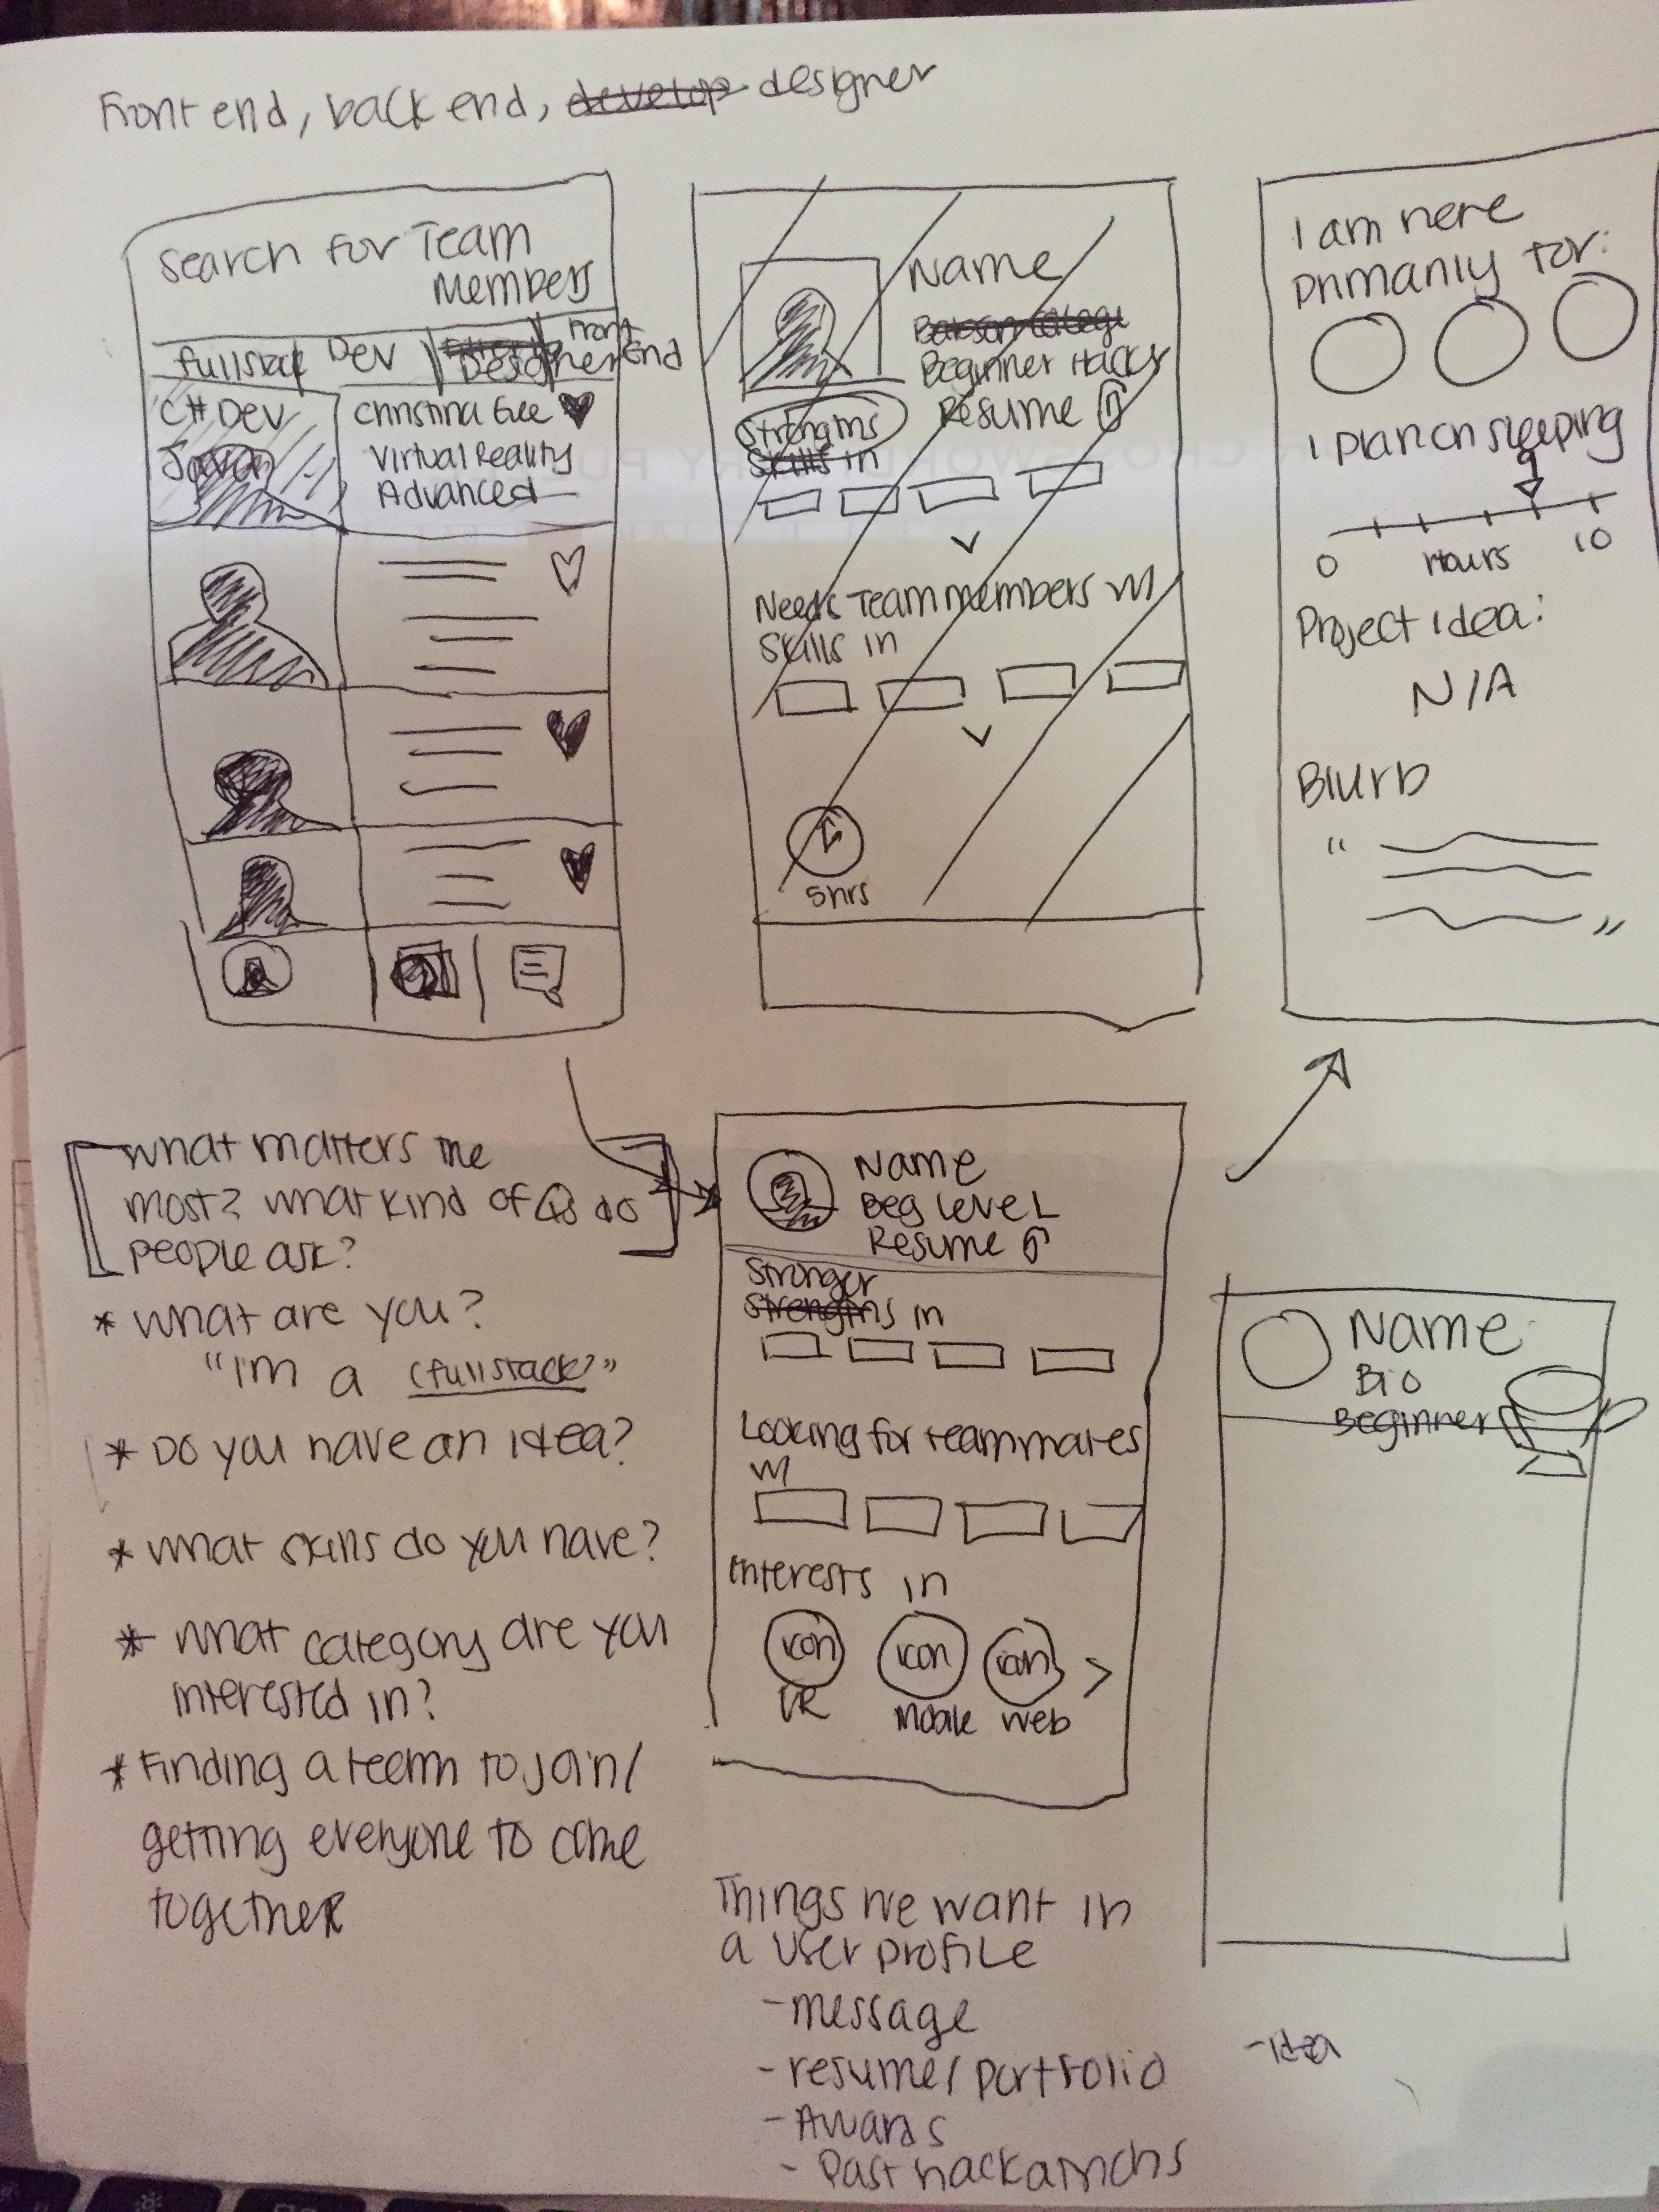 Front end, back end, develop designer
Search for Team
Members
fullstack Dev Designer Front End
C# Dev
Java
Christina Gee
Virtual Reality
Advanced
Name
Beginner Hacker
Resume
Strengths
Skills in
Needs Team members w/
Skills in
5hrs
I am here
primarily for:
I plan on sleeping
9
0 Hours 10
Project idea:
N/A
Blurb
“
”
What matters the
most? What kind of Qs do
people ask?
* What are you?
"I'm a (fullstack?"
* Do you have an idea?
* What skills do you have?
* What category are you
interested in?
* Finding a team to join/
getting everyone to come
together
Name
Beg Level
Resume
Stronger
Strengths in
Looking for teammates
w/
Interests in
icon icon icon >
VR Mobile Web
Name
Bio
Beginner
Things we want in
a user profile
- message
- resume/portfolio
- Awards
- Past hackathons
- idea